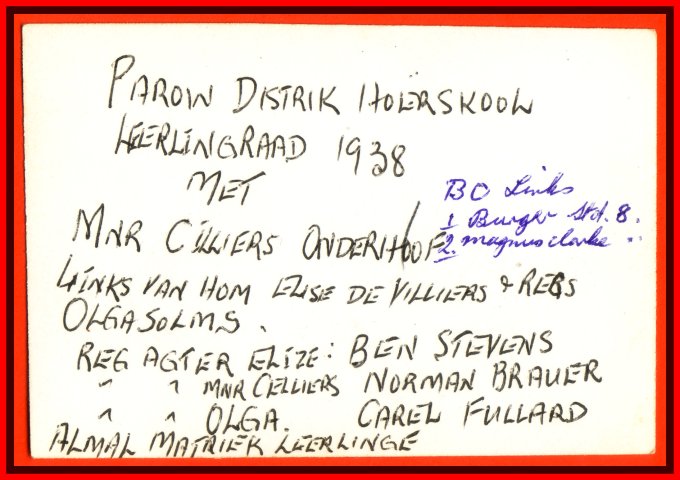 PAROW DISTRIK HOËRSKOOL
LEERLINGRAAD 1938
MET
MNR CILLIERS ONDERHOOF
LINKS VAN HOM ELISE DE VILLIERS & REGS
OLGA SOLMS.
REG AGTER ELIZE: BEN STEVENS
" " MNR CELLIERS NORMAN BRAUER
" " OLGA. CAREL FULLARD
ALMAL MATRIEK LEERLINGE
BO Links
1 Burger Std. 8.
2. Magnus Clarke "